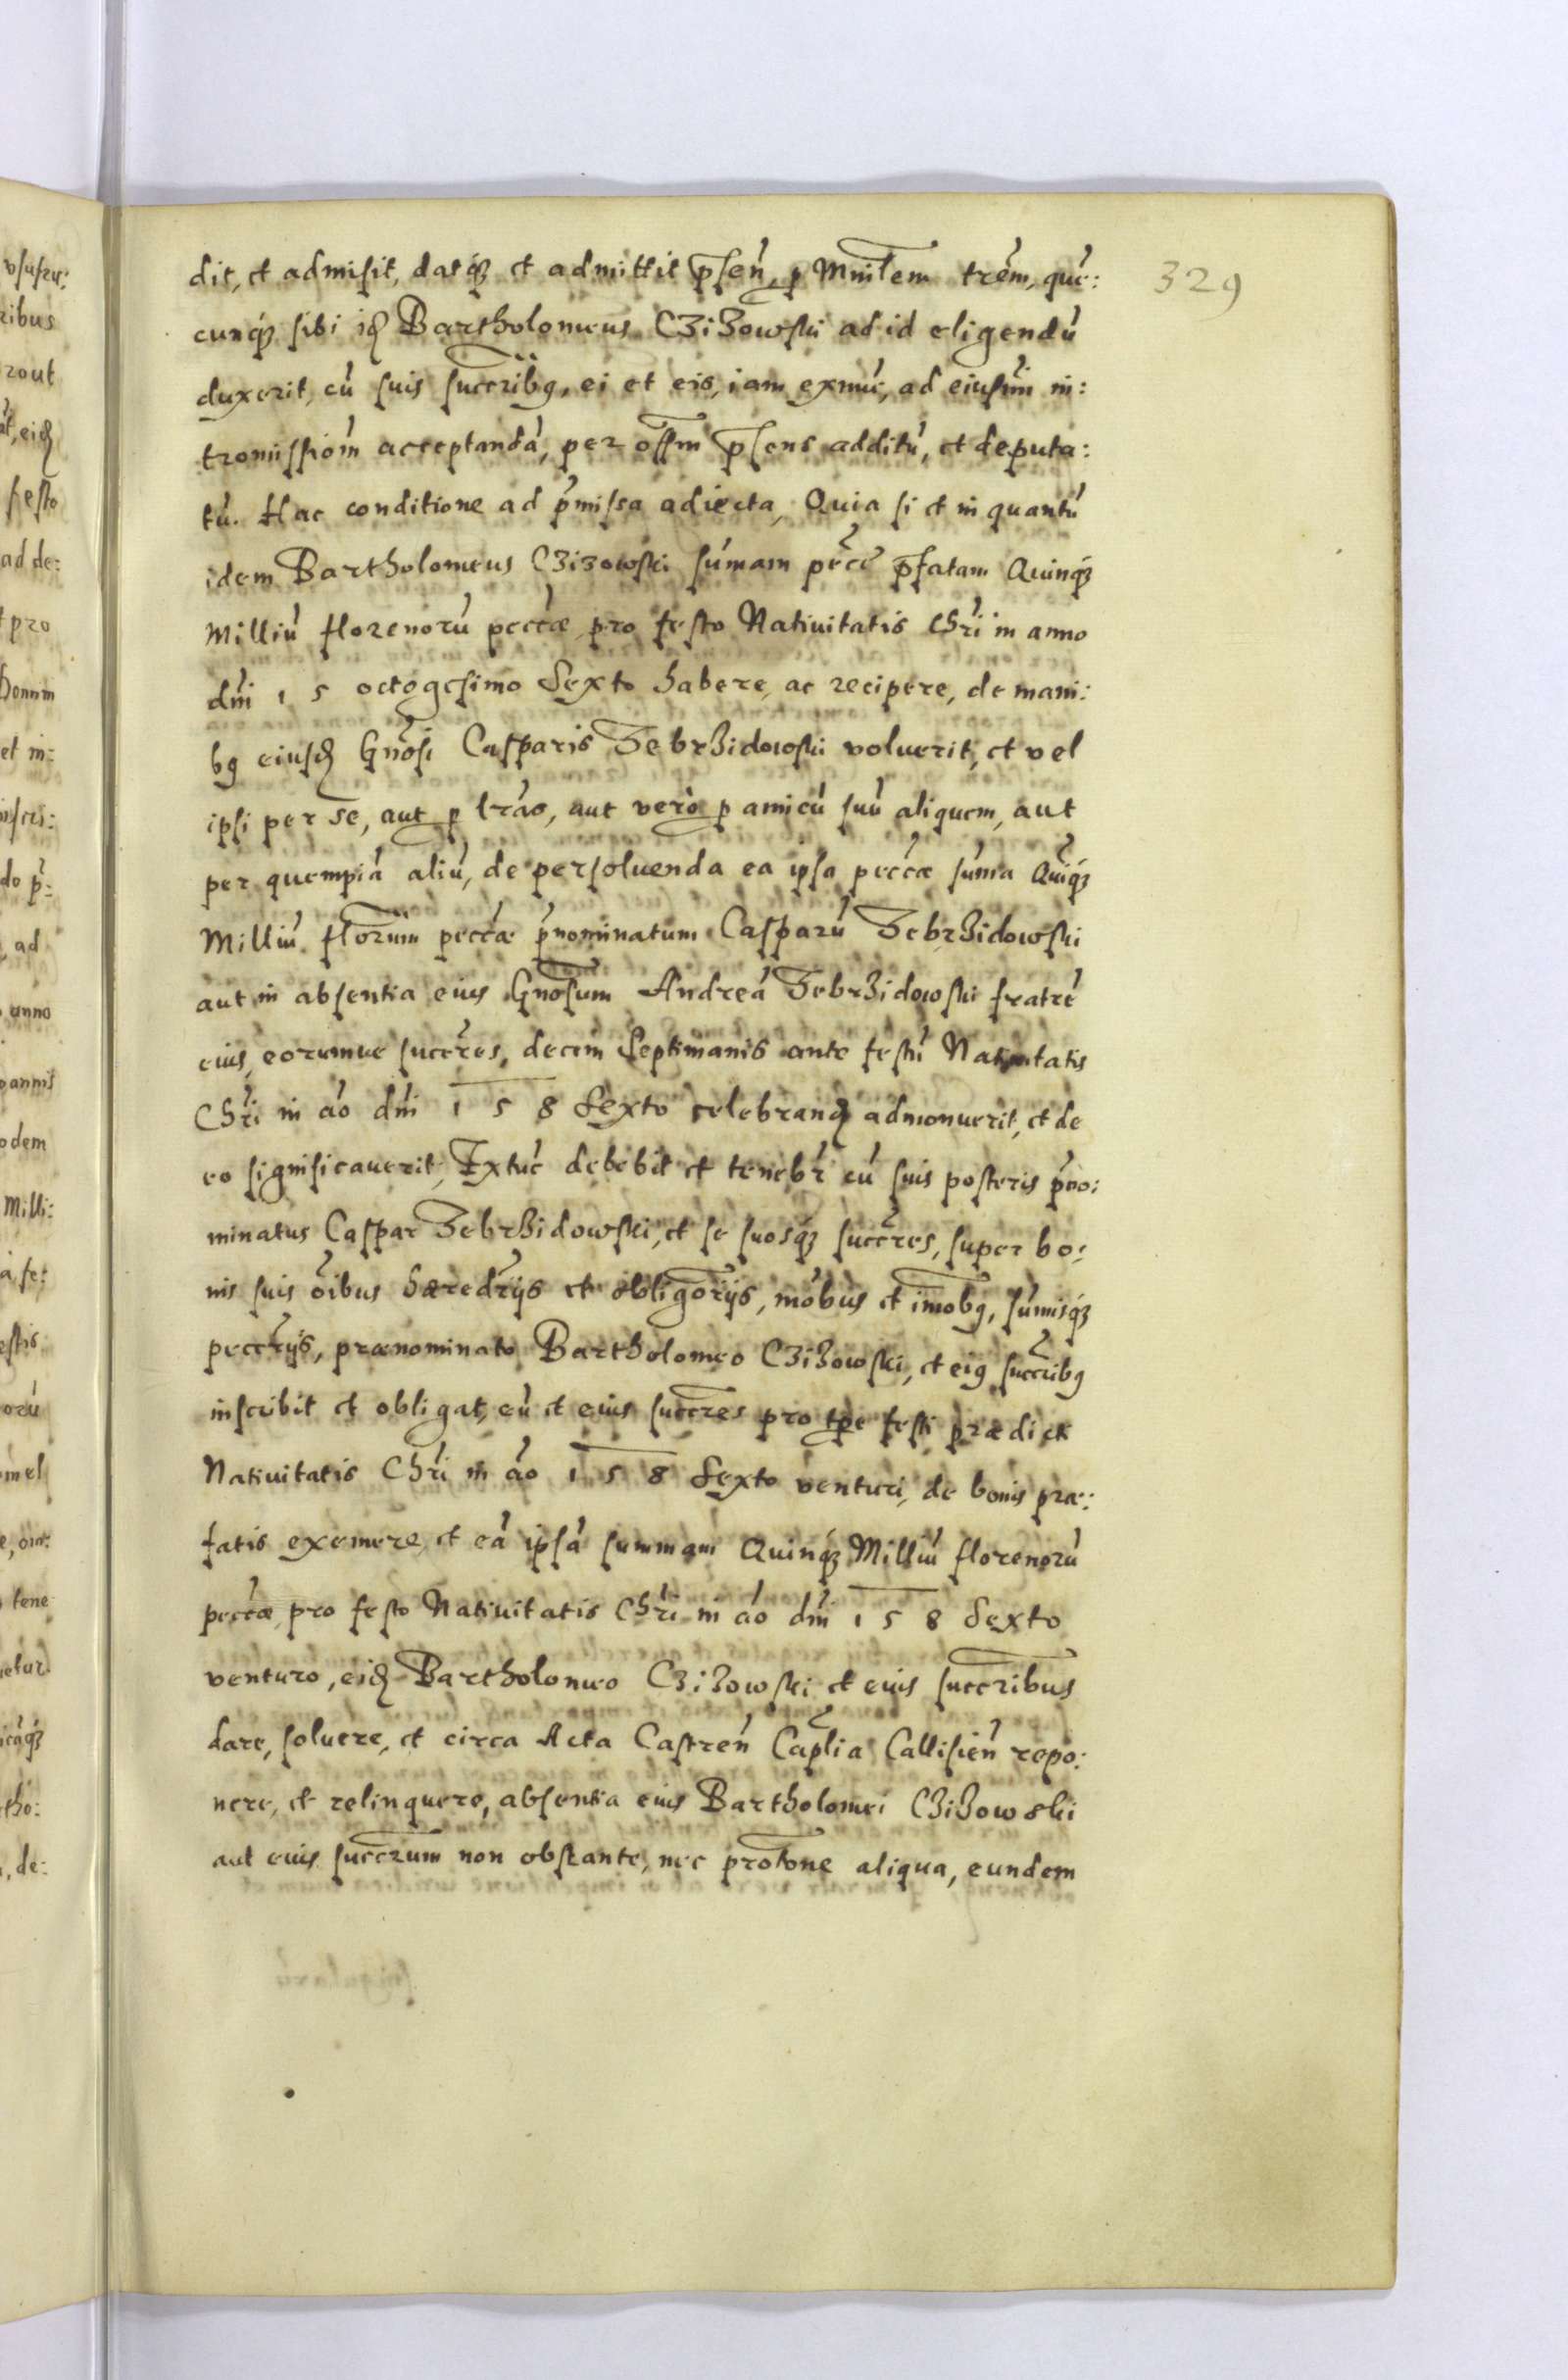 329
dit, et admisit, datq́ꝫ et admittit p̄seń, ꝑ Mnīlem trém, qué:
cunq́ꝫ sibi idꝫ Bartholomeus CziZowski ad id eligendú
duxerit, cú suis succr̄ibꝰ, ei et eis, iam exnúc, ad eiusm̄i in:
tromissióm acceptandá, per offm̄ p̄sens additú, et deputa:
tú. Hac conditione ad p̄missa adiecta, Quia si et in quantú
idem Bartholomeus Czizowski súmam pecc̄e p̄fatam Quinq́ꝫ
Milliú florenorú peccáe pro festo Natiuitatis Chrí in anno
dńi 1 5 octogesimo Sexto habere, ac recipere, de mani:
bꝰ eiusdꝫ Gnōsi Casparis ZebrZidowski voluerit, et vel
ipsi per se, aut ꝑ l̄rás, aut verò ꝑ amicú suú aliquem, aut
per quempiá aliú, de persoluenda ea ipsa peccáe súmā Quíq́ꝫ
Milliú florúm peccáe p̄nominatum Casparú ZebrZidowski
aut in absentia eius Gnōsum Andreá ZebrZidowski fratré
eius, eorumue succr̄es, decem Septimanis ante festú Natiuitatis
Chrí in áo dńi 1 5 8 Sexto celebrandꝫ admonuerit, et de
eo significauerit, Extúc debebit et tenebŕ cú suis posteris p̄no:
minatus Caspar ZebrZidowski, et se suosq́ꝫ succr̄es, super bo:
nis suis óibus hæredr̄ijs et obligor̄ijs, móbus et ímobꝰ, súmisq́ꝫ
peccr̄ijs, prænominato Bartholomeo CziZowski, et eiꝰ succr̄ibꝰ
inscribit et obligat, eú et eius succr̄es pro tp̄e festi prædicti
Natiuitatis Chrí in áo 1 5 8 Sexto venturi, de bonis præ:
fatis eximere, et eá ipsá summam Quinq́ꝫ Milliú florenorú
peccáe pro festo Natiuitatis Chrí in áo dńi 1 5 8 Sexto
venturo, eidꝫ Bartholomeo CziZowski et eius succr̄ibus
dare, soluere, et circa Acta Castreń Cap̄lia Callisień repo:
nere, et relinquere, absentia eius Bartholomei CziZowski
aut eius succr̄um non obstante, nec protōne aliqua, eundem